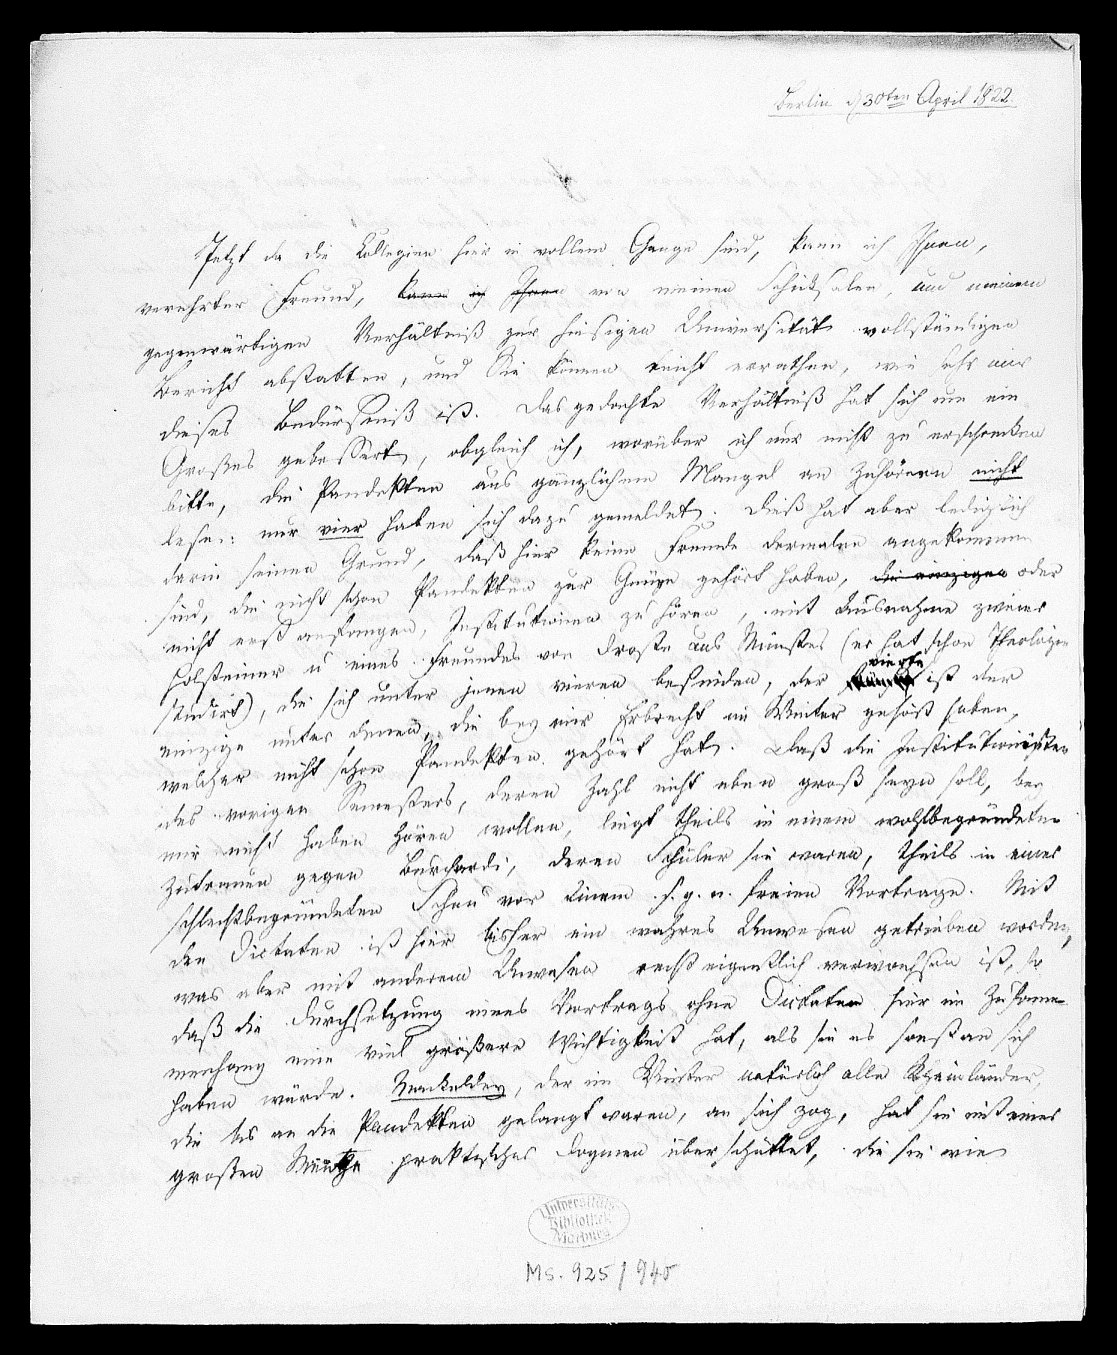 Berlin d 30ten April 1822.
Jetzt da die Collegien hier in vollem Gange sind, kann ich Ihnen,
verehrter Freund, kann ich Ihnen von meinen Schicksalen, und meinem
gegenwärtigen Verhältniß zur hiesigen Universität vollständigen
Bericht abstatten, und Sie können leicht errathen, wie sehr mir
dieses Bedürfniß ist. Das gedachte Verhältniß hat sich um ein
Großes gebessert, obgleich ich, worüber ich nur nicht zu erschrecken
bitte, die Pandekten aus gänzlichem Mangel an Zuhörern nicht
lese: nur vier haben sich dazu gemeldet. Dieß hat aber lediglich
darin seinen Grund, daß hier keine Fremde dermalen angekommen
sind, die nicht schon Pandekten zur Genüge gehört haben, die einzigen oder
nicht erst anfangen, Institutionen zu hören, mit Ausnahme zweier
Holsteiner u eines Freundes von Droste aus Münster (er hat schon Theologie
studirt), die sich unter jenen vieren befinden, der vierte ist der
einzige unter denen, die bey mir Erbrecht im Winter gehört haben,
welcher nicht schon Pandekten gehört hat. Daß die Institutionisten
des vorigen Semesters, deren Zahl nicht eben groß seyn soll, bey
mir nicht haben hören wollen, liegt theils in einem wohlbegründeten
Zutrauen gegen Burchardi, deren Schüler sie waren, theils in einer
schlechtbegründeten Scheu vor einem s. g. n. freien Vortrage. Mit
den Dictaten ist hier bisher ein wahres Unwesen getrieben worden,
was aber mit anderem Unwesen recht eigentlich verwachsen ist, so
daß die Durchsetzung eines Vortrags ohne Dictaten hier im Zusamme
menhang eine viel größere Wichtigkeit hat, als sie es sonst an sich
haben würde. Mackeldey, der im Winter natürlich alle Rheinländer,
die bis an die Pandekten gelangt waren, an sich zog, hat sie mit einer
großen Menge praktischer Dogmen überschüttet, die sie wie
Universitäts
Bibliothek
Marburg
Ms. 925/940